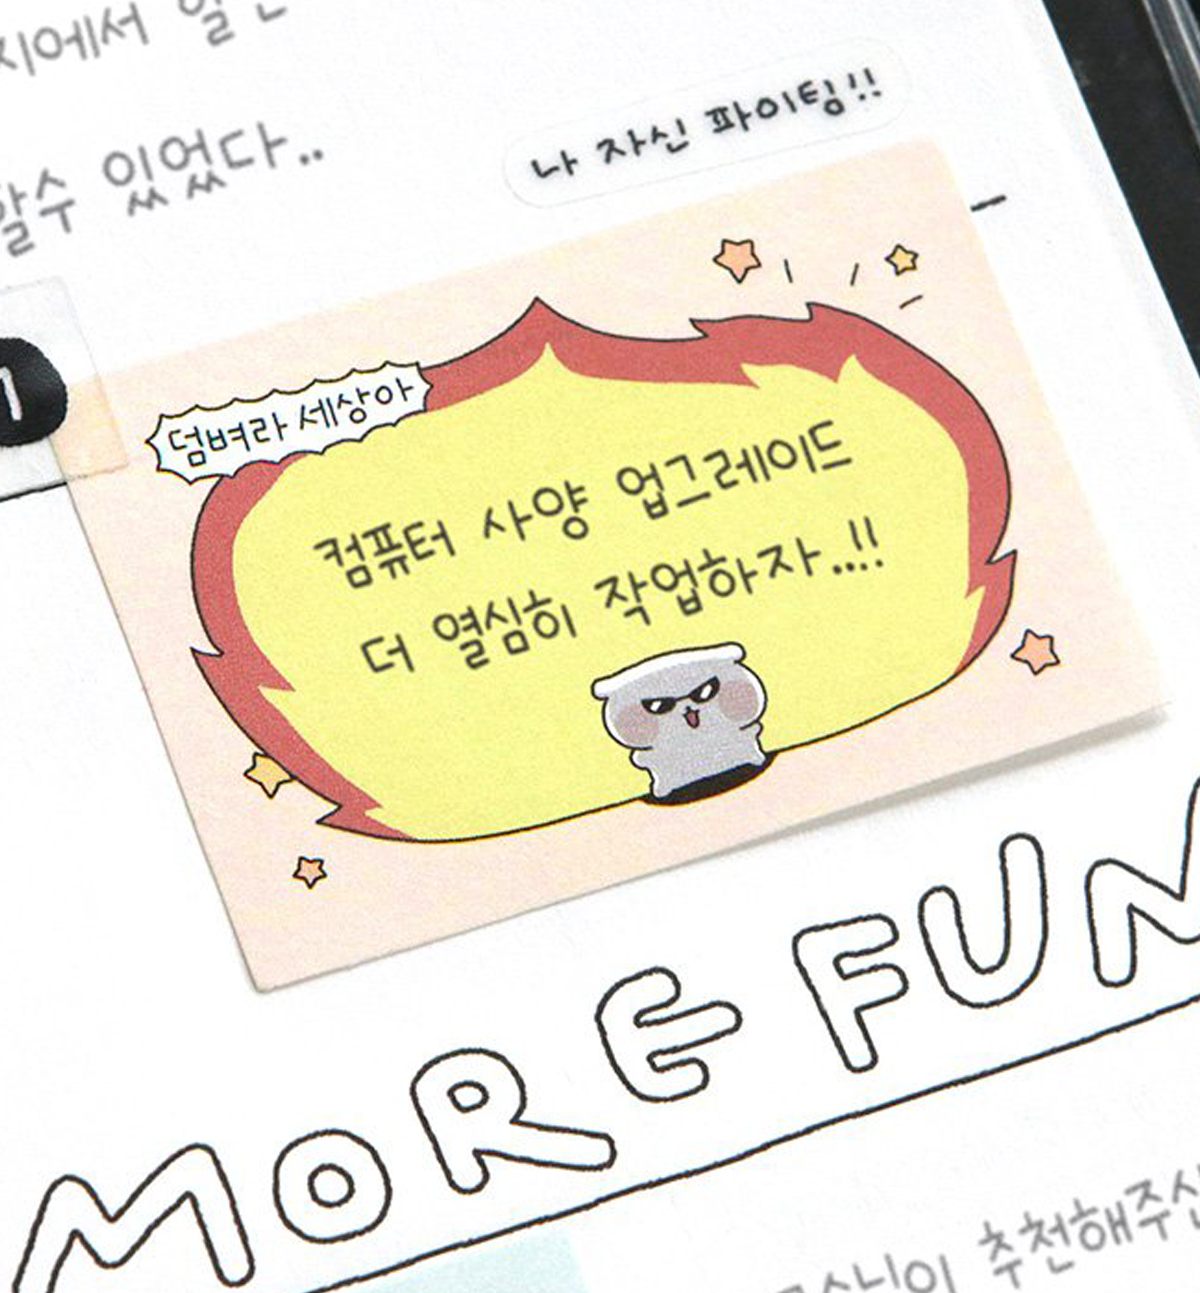 지에서
할수 있었다..
나 자신 파이팅!!
1
덤벼라 세상아
컴퓨터 사양 업그레이드
더 열심히 작업하자...!!
MORE FUN
추천해주신